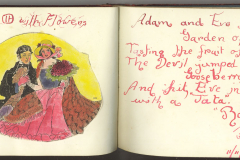 with Flowers
Adam and Eve
Garden of
Tasting the fruit of
The Devil jumped
gooseberr
And Eve in
with a Tata.